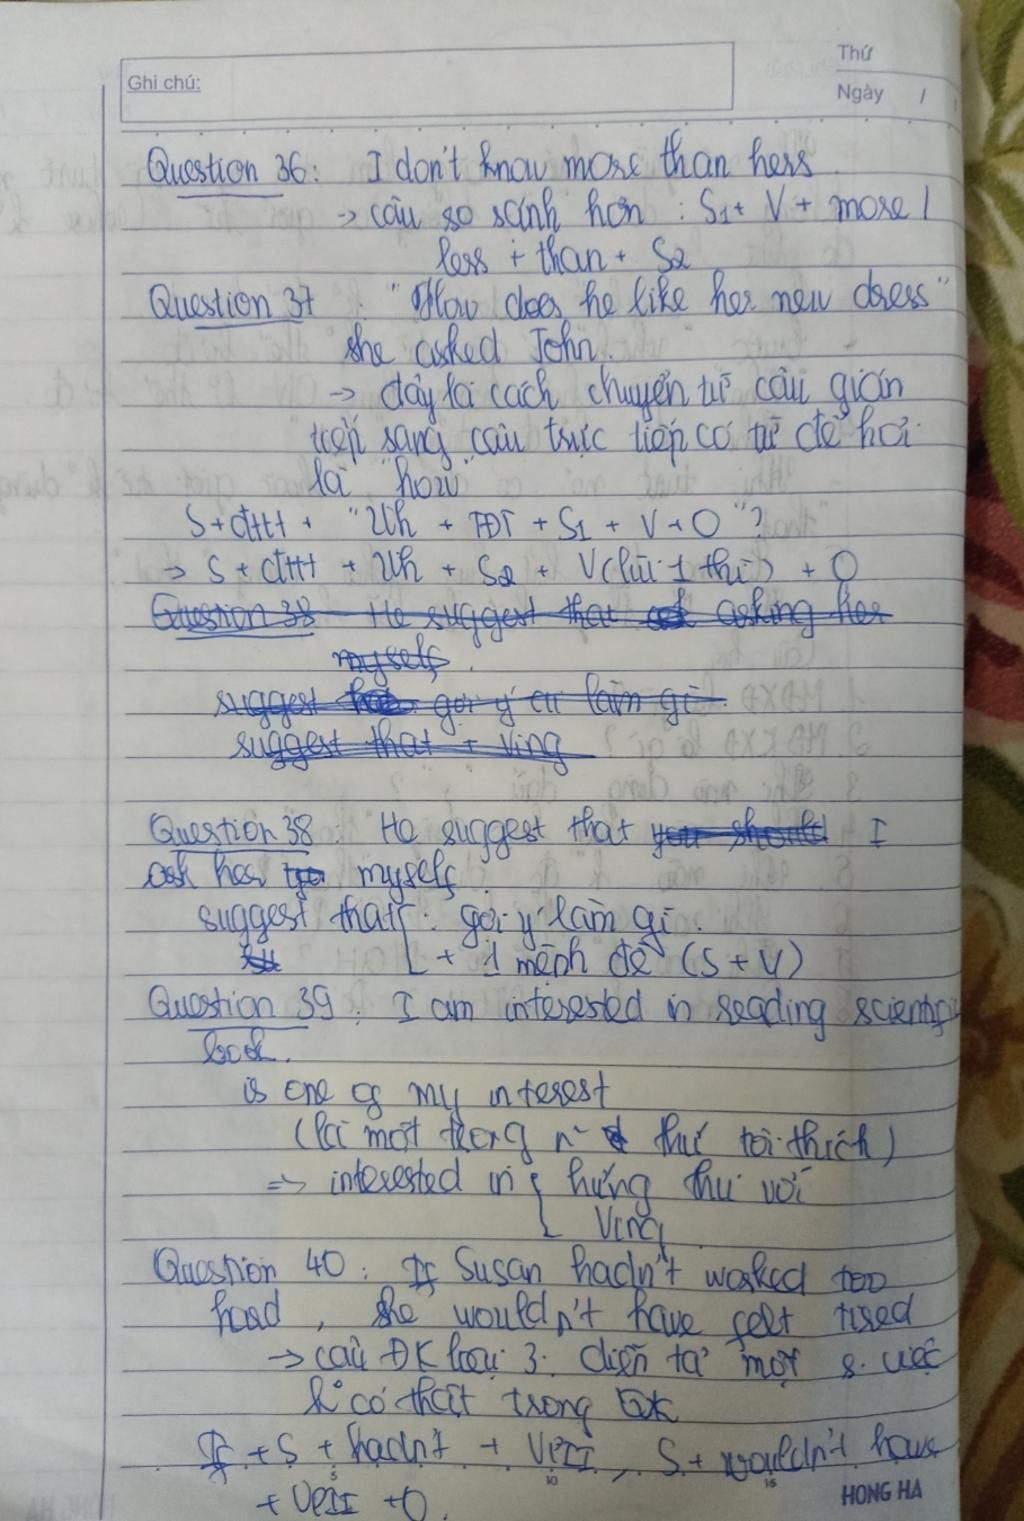 Ghi chú:
Thứ
Ngày /
Question 36: I don't know more than hers
→ câu so sánh hơn : S1 + V + more /
less + than + S2
Question 37 "How does he like her new dress"
she asked John.
→ đây là cách chuyển từ câu gián
tiếp sang câu trực tiếp có từ để hỏi
là "how"
S + đttt + "Wh + TĐT + S1 + V + O"?
→ S + đttt + Wh + S2 + V(lùi 1 thì) + O
Question 38 He suggest that asking her
myself.
suggest gợi ý cái làm gì
suggest that + Ving
Question 38: He suggest that you should I
ask her myself.
suggest that : gợi ý làm gì.
+ 1 mệnh đề (S + V)
Question 39: I am interested in reading scientific
book.
is one of my interest
(là một trong n~ thứ tôi thích)
=> interested in { hứng thú với
Ving
Question 40: If Susan hadn't worked too
hard, she wouldn't have felt tired
→ câu ĐK loại 3: diễn tả một s. việc
k° có thật trong QK
If + S + hadn't + VPII, S + wouldn't have
+ VPII + O.
5 10 15
HONG HA